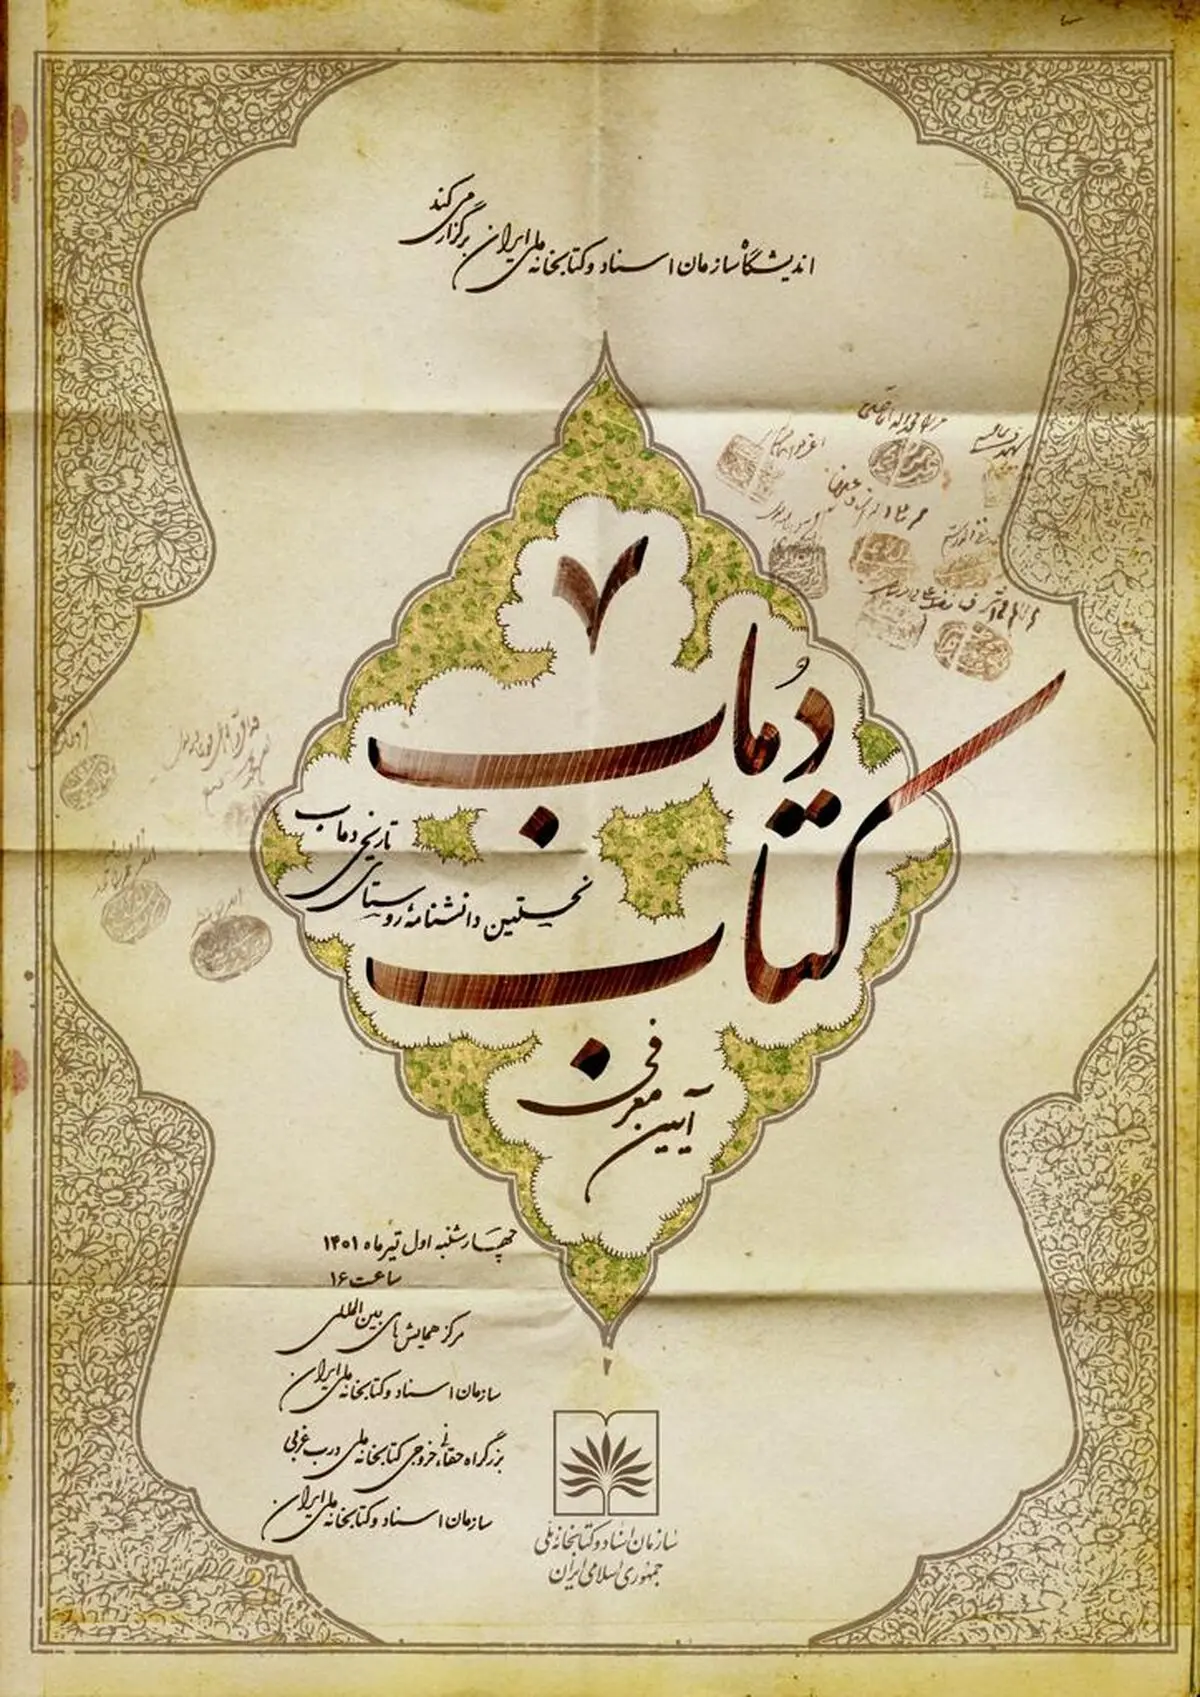 اندیشگاه سازمان اسناد و کتابخانه ملی ایران برگزار می‌کند
۷
کتاب دُماب
نخستین دانشنامهٔ روستای تاریخی دماب
آیین معرفی
چهارشنبه اول تیر ماه ۱۴۰۱
ساعت ۱۶
مرکز همایش‌های بین‌المللی
سازمان اسناد و کتابخانه ملی ایران
بزرگراه حقانی، خروجی کتابخانه ملی، درب غربی
سازمان اسناد و کتابخانه ملی ایران
سازمان اسناد و کتابخانه ملی
جمهوری اسلامی ایران